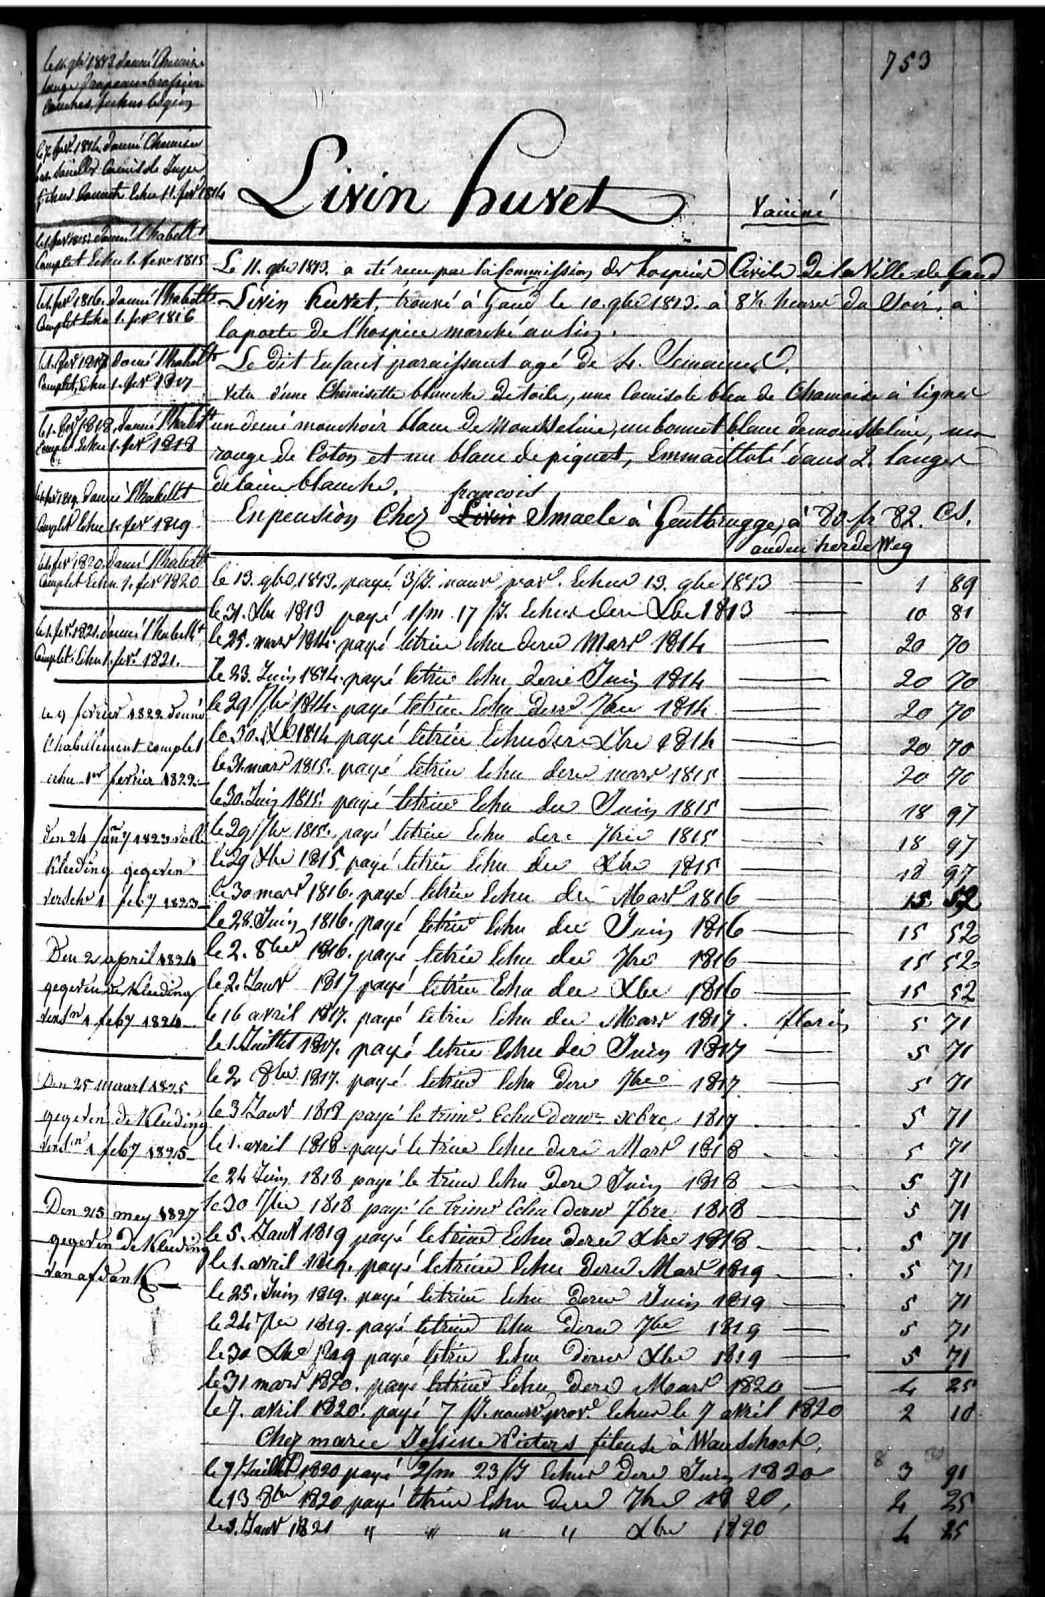 753
le 11 gbre 1813 donné Chemise
lange
couches, fichus
le fevr 1814 donné Chemise
Echu 11. fevr 1814
Livin huret
Vacciné
le 1. fevr 1815 donné l'habillt
Complet Echu le fevr 1815
le 1. fevr 1816. donné l'habillt
Complet Echu 1. fevr 1816
le 1. fevr 1817 donné l'habillt
Complet, Echu 1. fevr 1817
le 1. fevr 1818, donné l'habillt
Complet Echu 1. fevr 1818
le fevr 1819. donné l'habillt
Complet Echu 1. fevr 1819
le fevr 1820 donné l'habillt
Complet Echu 1. fevr 1820
le 1. fevr 1821. donné l'habillt
Complet. Echu 1. fevr. 1821.
Le 9 fevrier 1822 donné
l'habillement complet
echu 1er fevrier 1822
Den 24 1823 volle
kleeding gegeven
versch 1 feby 1823
Den 2 april 1824
gegeven de kleeding
1 feby 1824
Den 25 maart 1825
gegeven de kleeding
1 feby 1825
Den 25 mey 1827
gegeven de kleeding
van afdank
Le 11. gbre 1813. a été recu par la Commission des hospices Civils de la Ville de Gand
Livin huret, trouvé à Gand le 10. gbre 1813. à 8½ heures du Soir, à
la porte de l'hospice marché au lin.
Le dit Enfant paraissant agé de 4. Semaines.
vetu d'une Chemisette blanche de toile, une Camisole bleu de Chamoise à lignes
un demi mouchoir blanc de Mousseline, un bonnet blanc de mousseline, un
rouge de Coton et un blanc de piquet, Emmaillotté dans 2. langes
de laine blanche.
francois
En pension Chez Livin Smaele à Gentbrugge, à 80 fr 82. Cs.
anden herdeweg
le 13. gbre 1813. payé 3/J. nourr prov. Echus 13. gbre 1813 1 89
le 31. Xbre 1813 payé 1/m 17/J. Echus dern Xbre 1813 10 81
le 25. mars 1814. payé letrim Echu dern Mars 1814 20 70
le 23. Juin 1814. payé letrim Echu dern Juin 1814 20 70
le 29 7bre 1814. payé letrim Echu dern 7bre 1814 20 70
le 30. Xbre 1814 payé letrim Echu dern Xbre 1814 20 70
le 31. mars 1815. payé letrim Echu dern mars 1815 20 70
le 30. Juin 1815. payé letrim Echu der Juin 1815 18 97
le 29 7bre 1815. payé letrim Echu dern 7bre 1815 18 97
le 29 Xbre 1815 payé letrim Echu der Xbre 1815 18 97
le 30 mars 1816. payé letrim Echu der Mars 1816 15 52
le 28. Juin 1816. payé letrim Echu der Juin 1816 15 52
le 2. 8bre 1816. payé letrim Echu der 7bre 1816 15 52
le 2. Janv 1817 payé letrim Echu der Xbre 1816 15 52
le 16 avril 1817. payé letrim Echu der Mars 1817. florins 5 71
le 1. Juillet 1817. payé letrim Echu der Juin 1817 5 71
le 2 8bre 1817. payé letrim Echu dern 7bre 1817 5 71
le 3 Janv 1818 payé le trim. Echu dern xbre 1817 5 71
le 1. avril 1818 payé le trim Echu dern Mars 1818 5 71
le 24 Juin 1818 payé le trim Echu Dern Juin 1818 5 71
le 30 7bre 1818 payé le trim Echu dern 7bre 1818 5 71
le 5. Janv 1819 payé le trim Echu dern Xbre 1818 5 71
le 1. avril 1819. payé letrim Echu dern Mars 1819 5 71
le 25. Juin 1819. payé letrim Echu dern Juin 1819 5 71
le 24 7bre 1819. payé letrim Echu dern 7bre 1819 5 71
le 30 Xbre 1819 payé letrim Echu dern Xbre 1819 5 71
le 31 mars 1820. payé letrim Echu dern Mars 1820 4 25
le 7. avril 1820. payé 7/J. nourr prov. Echus le 7 avril 1820 2 10
Chez marie Pieters fileuse à Waerschoot,
le 7 Juillet 1820 payé 2/m 23/J Echus Dern Juin 1820 3 91
le 13 8bre 1820 payé letrim Echu dern 7bre 1820, 4 25
le 3. Janv 1821 " " " " Xbre 1820 4 25